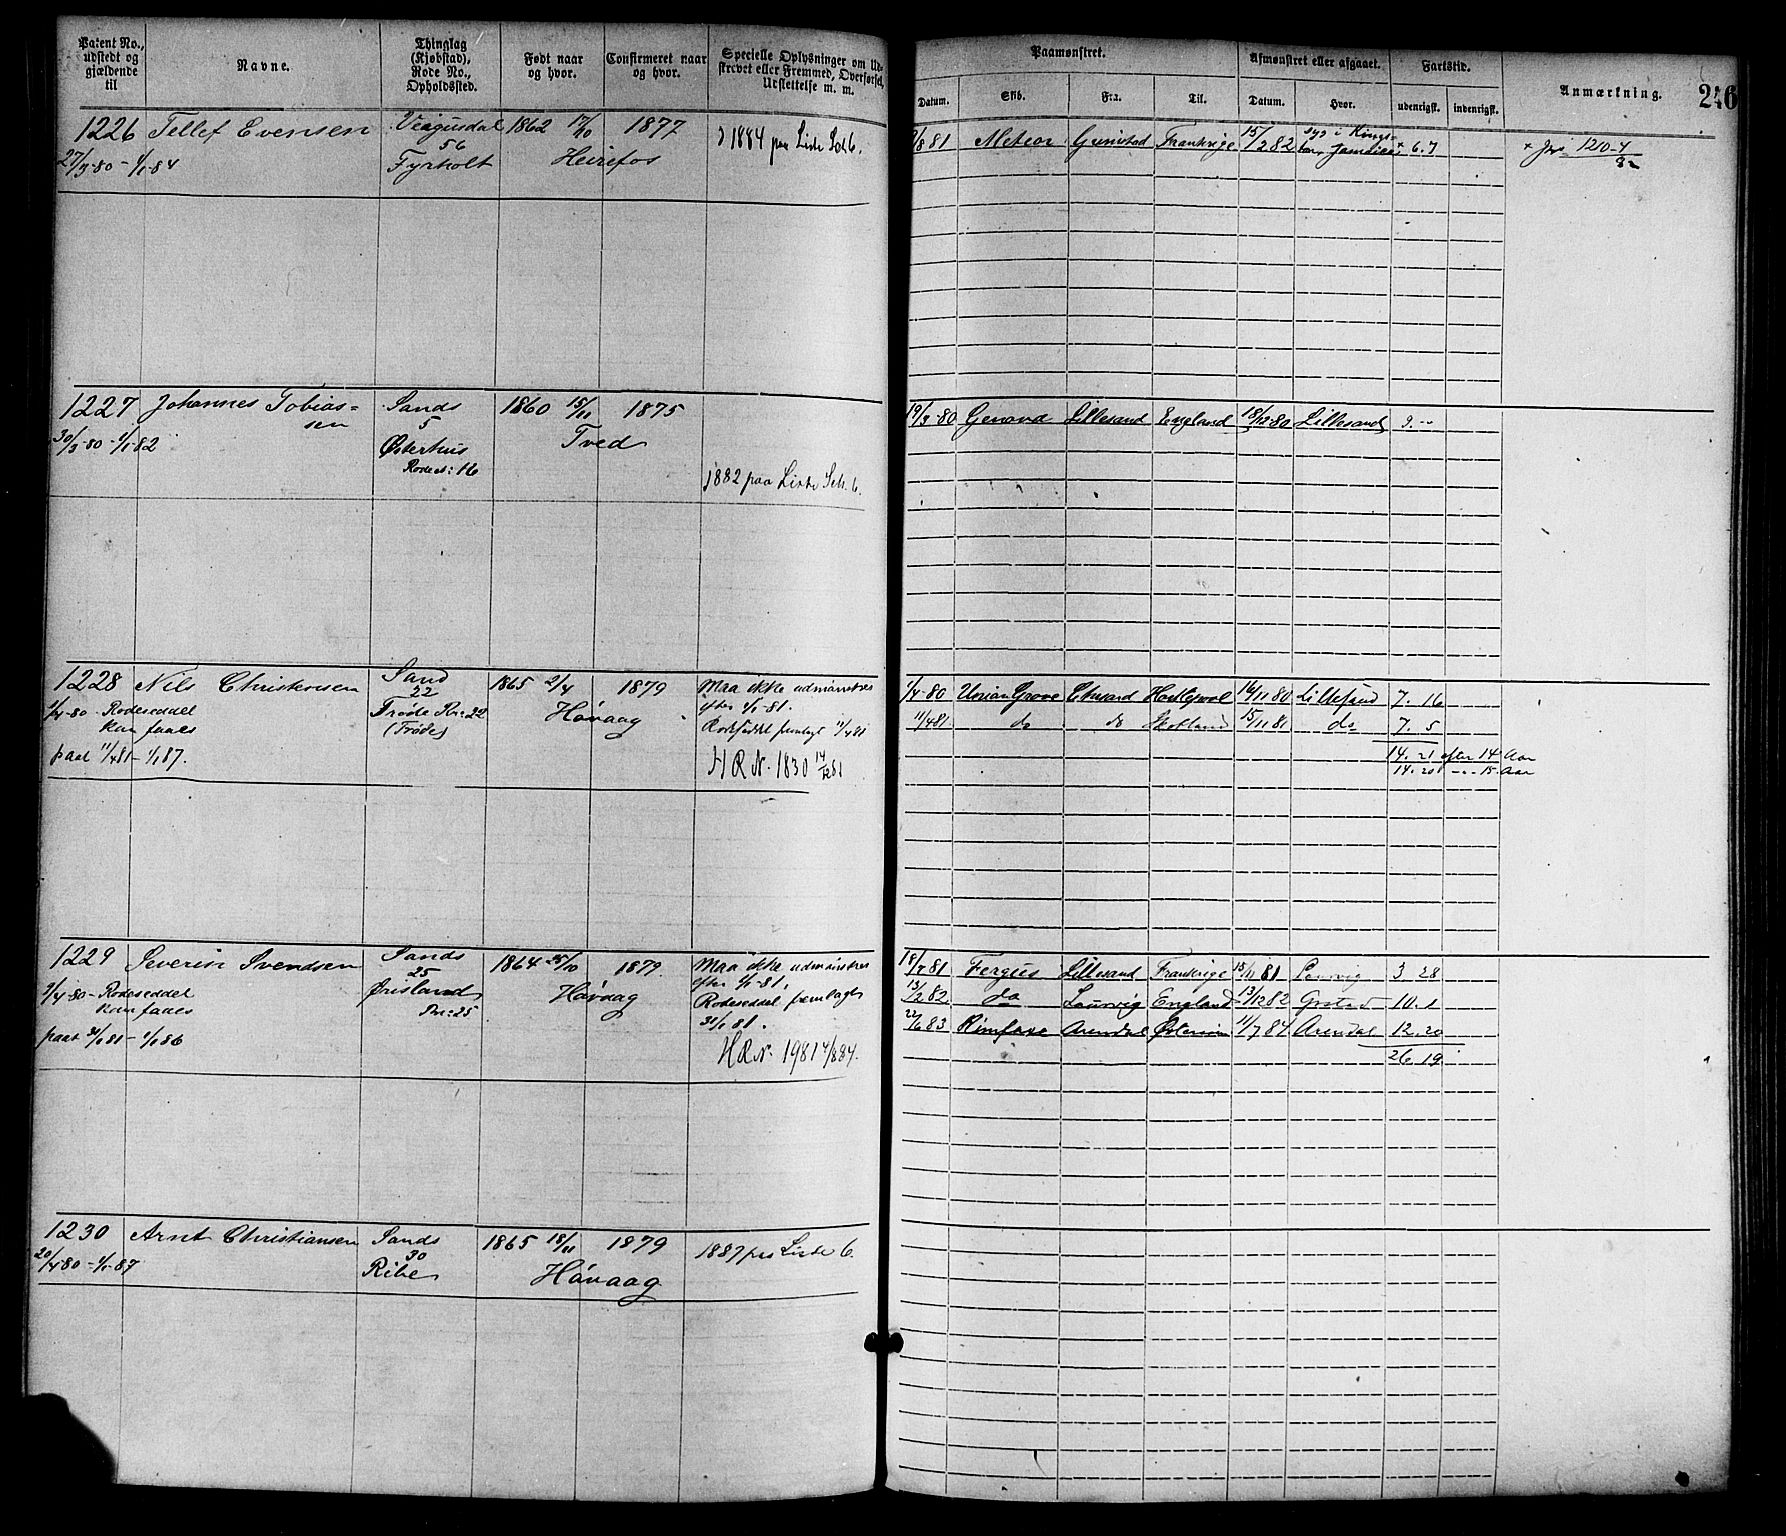 Patent No., udstedt og gjældende til
Navne.
Thinglag (Kjøbstad), Rode No., Opholdssted.
Født naar og hvor.
Confirmeret naar og hvor.
Specielle Oplysninger om Udskrevet eller Fremmed, Overførsel, Udslettelse m. m.
Paamønstret.
Datum.
Skib.
Fra.
Til.
Afmønstret eller afgaaet.
Datum.
Hvor.
Fartstid.
udenrigsk.
indenrigsk.
Anmærkning.
246
1226 Tellef Evensen Veigusdal 1862 17/10 1877
27/3-80 - 1/1-84 56
Fyrholt Heirefos
1884 paa Liste Sol 6.
/8 81 Meteor Grimstad Frankrige 15/2 82 syg i Kingston, Jamaica + 6.7
1227 Johannes Tobiassen Sands 1860 15/11 1875
30/3-80 - 1/1-82 5
Østerhus Tved
Rode No: 16
1882 paa Liste
19/3-80 Lillesand England 18/12 80 Lillesand 9. --
1228 Nils Christensen Sand 1865 2/4 1879
22
1/4-80 - Rodeseddel Trøde Rn: 22 Høvaag
kan faaes (Trøde)
paat 11/4 81 - 1/1 87.
Maa ikke udmønstres
efter 1/1-81.
Rodeseddel fremlagt 11/4 81
H R N. 1830 14/12 81
1/4-80 14/11 80 Lillesand 7. 16
11/4 81 do do Skotland 15/11 81 do 7. 5
14. 21 efter 14 Aar
14. 20 -„- 15 Aar
1229 Severin Svendsen Sands 1864 25/10 1879
25
1/4-80 - Rodeseddel Ørisland Høvaag
kan faaes Rn: 25
paat 31/1 81 - 1/1 86
Maa ikke udmønstres
efter 1/1-81.
Rodeseddel fremlagt
31/1 81.
H R N. 1981 4/8 84.
18/4 81 Fergus Lillesand Frankrige 15/11 81 3. 28
13/2 82 do Laurvig England 13/12 82 10. 1
22/6 83 Rimfaxe Arendal 11/7 84 Arendal 12. 20
26. 19
1230 Arnt Christiansen Sands 1865 18/11 1879
20/4-80 - 1/1-87 30
Ribe Høvaag
1887 paa Liste 6.